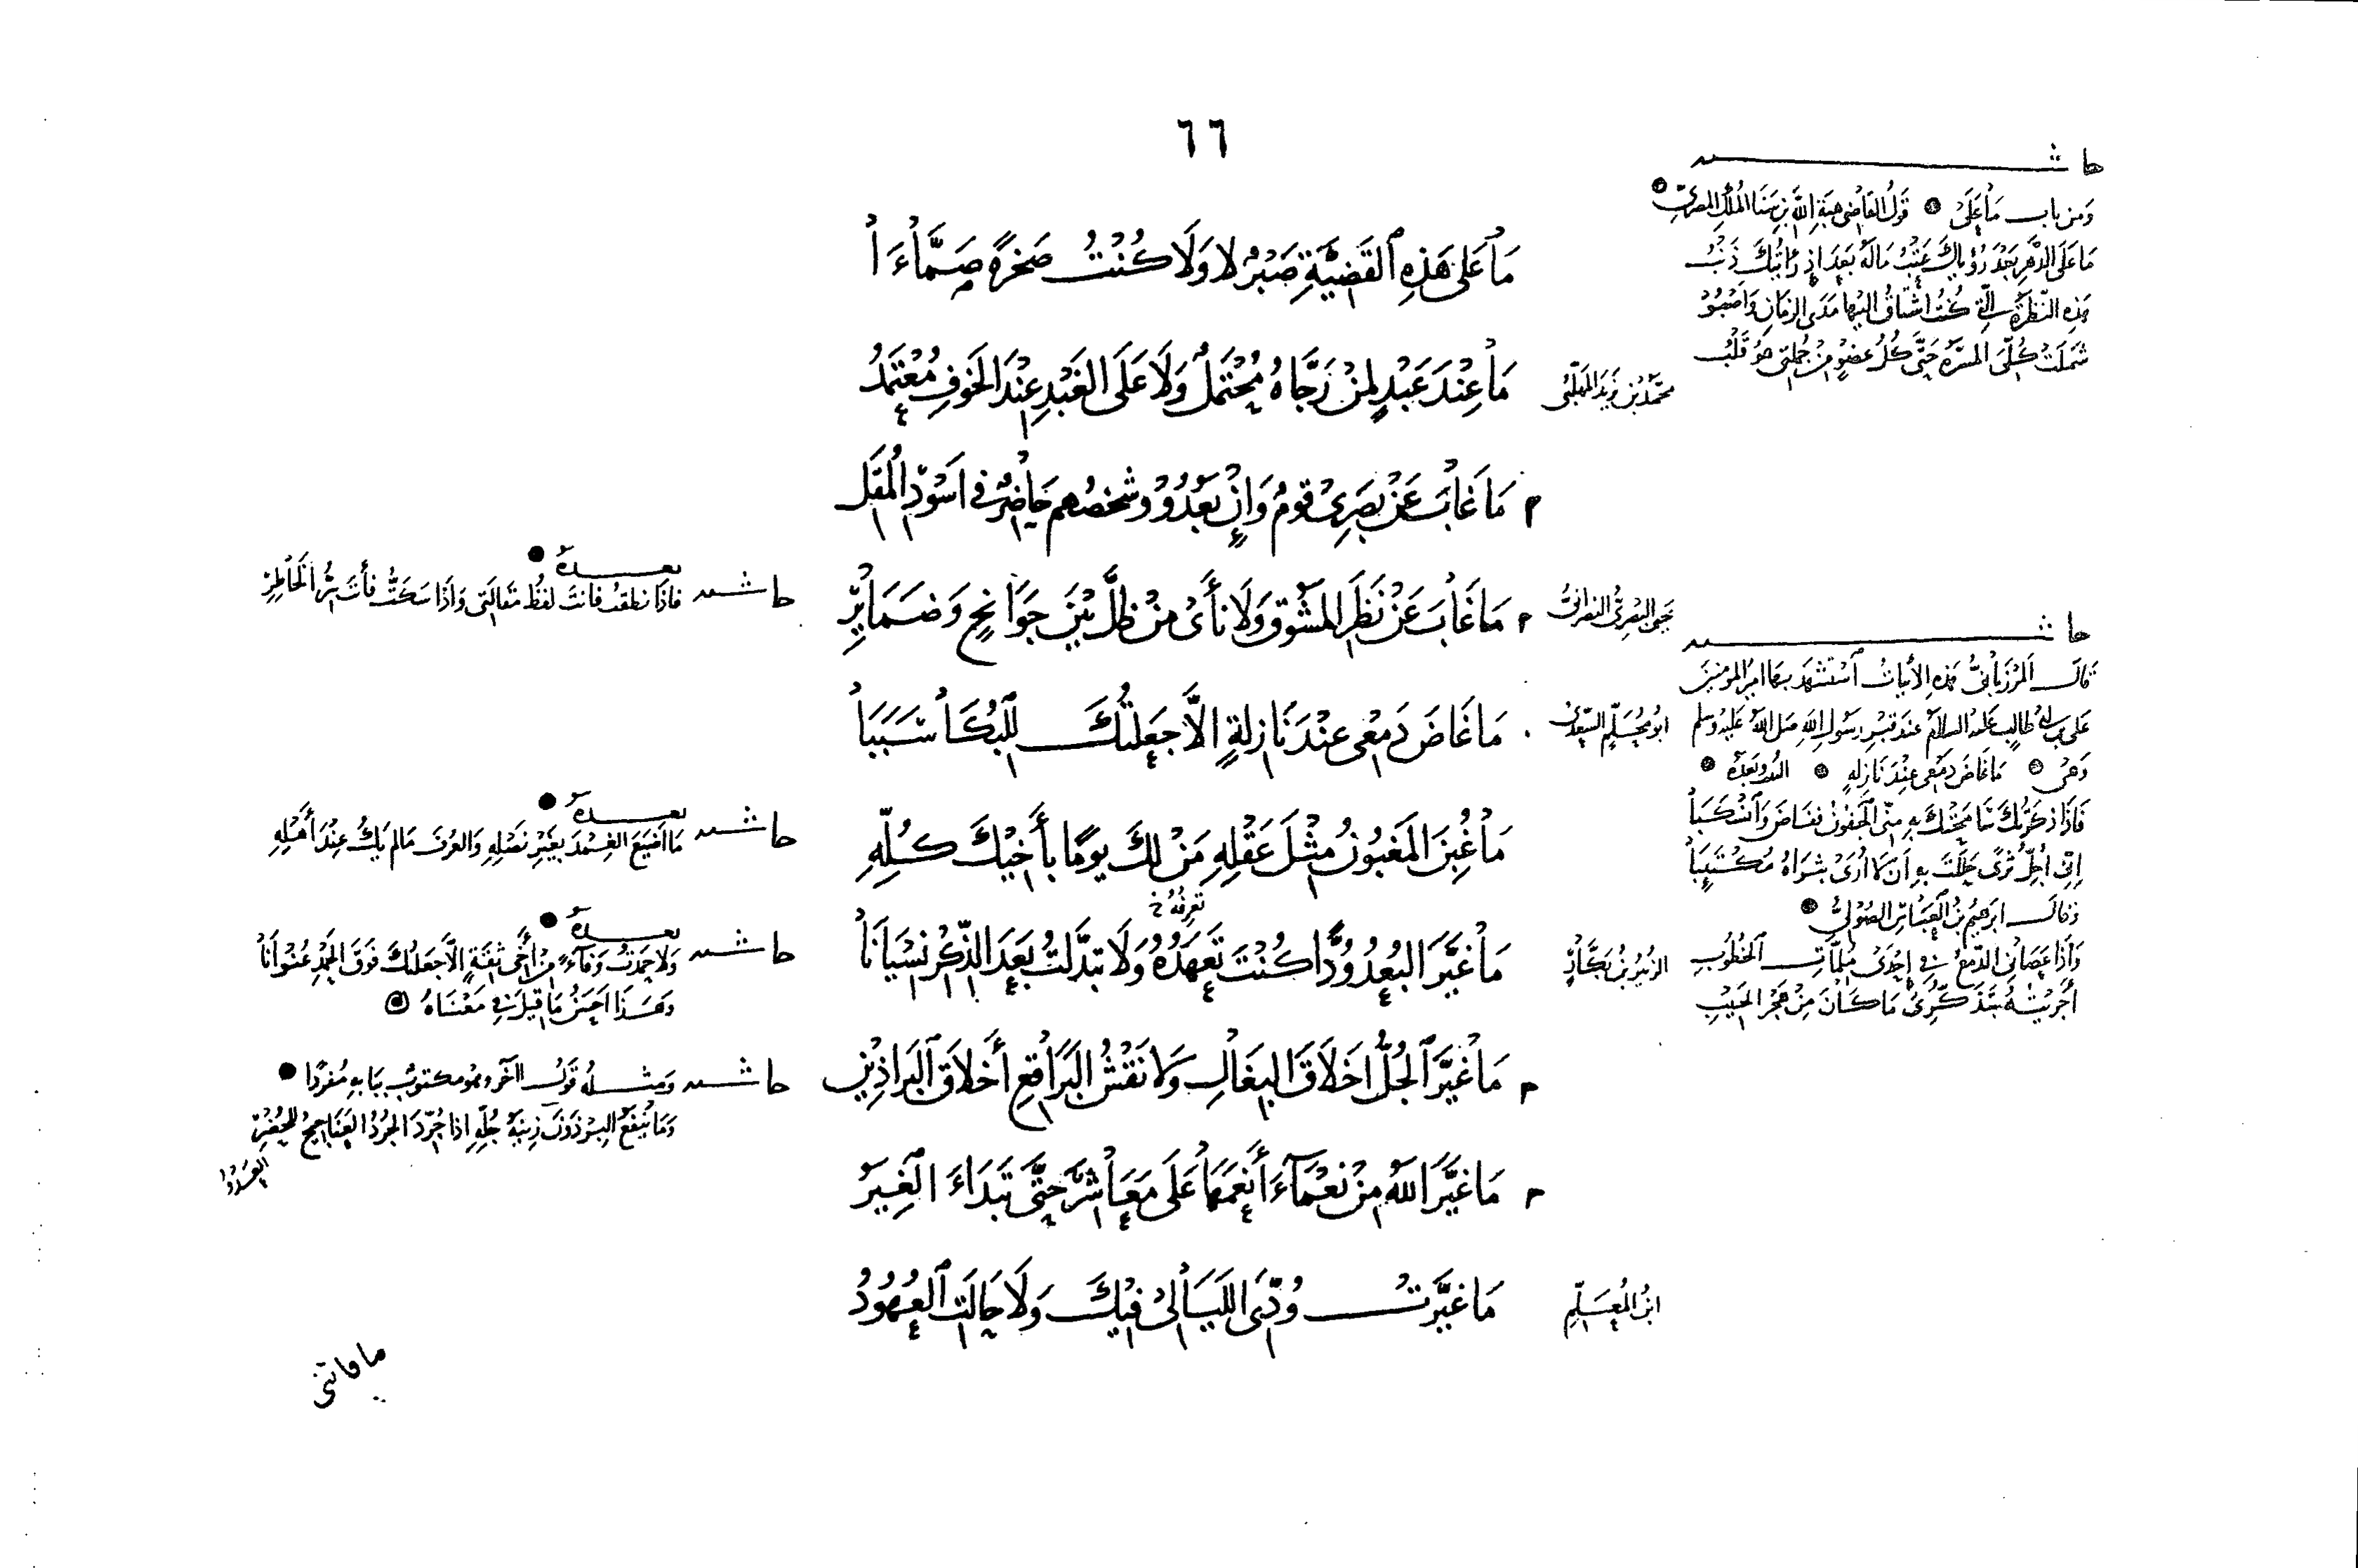 ٦٦
مَا عَلَى هَذِهِ القَضِيَّةِ صَبْرٌ لا وَلَا كُنْتُ صَخرَةً صَمَّاءَا
مَا عِنْدَ عَبْدٍ لِمَنْ رَجَّاهُ مُحْتَمَلٌ وَلَا عَلَى العَبْدِ عِنْدَ الخَوفِ مُعْتَمَدُ
مَا غَابَ عَنْ بَصَرِي قومٌ وَإِنْ بَعُدُوْا وشخصُهم حَاضِرٌ في اَسْوَدِ المُقَلِ
مَا غَابَ عَنْ نَظَرِ المَشُوقِ وَلَا نَأَى مَنْ ظَلَّ بَيْنَ جَوَانحٍ وَضَمَايِرِ
مَا غَاضَ دَمْعِي عِنْدَ نَازِلةٍ الَّا جَعَلتُكَ لِلبُكَا سَبَبَا
مَا غُبِنَ المَغبُونُ مِثْلَ عَقْلِهِ مَنْ لكَ يومًا بأَخِيْكَ كُلِّهِ
تعرفه خ
مَا غَيَّرَ البُعدُ وُدًّا كُنْتَ تَعهَدُهُ وَلَا تبَدَّلتُ بَعدَ الذِّكرِ نسْيَانَا
مَا غيَّرَ الجُلُّ اخلَاقَ البِغَالِ وَلا نَقْشُ البَرَاقعِ أَخلاقَ البَرَاذِيْنِ
مَا غيَّرَ اللهُ مِنْ نعْمَآءَ أَنعَمَهَا عَلَى مَعَاشرَ حتَّى تَبَدَاءَ الغِيَرُ
مَا غيَّرتْ وُدِّيَ اللَيَالي فيْكَ وَلَا حالَتِ العُهُودُ
محمّد بن يزيد المهلّبي
يحيى البصري النصراني
ابو محلم السعدي
الزبير بن بكّارٍ
ابن المعلّم
حاشيه
وَمن باب مَا عَلَى قولُ القاضي هبة الله بن سنا الملك المصري
مَا عَلَى الدَّهرِ بَعْدَ رُؤياكَ عَتْبٌ مَا لَهُ بعدَ اذ رأيتكَ ذَنْبُ
هذه النظرةُ التي كنتُ اشتاقُ اليها مَدَى الزمانِ وَاَصْبُوْ
شَمَلَتْ كُلّيَ المسَرّةُ حتّى كلُّ عضوٍ من جُملتي هُوَ قَلْبُ
حاشيه
قالَ المَرْزُبانيُّ هذه الأبياتُ استَشهدَ بها امير المومنين
على بن ابي طالب عليه السلام عند قبر رسول الله صلى الله عليه وسلم
وَهي مَا غَاضَ دَمعي عِنْدَ نَازِلةٍ البيت وبعدَهُ
فَاذا ذكرتُكَ سَامَحَتْكَ بهِ منّي الجفُونُ ففَاضَ وَانْسَكَبَا
اِنّي اُجِلُّ ثَرًى حلَلتَ بهِ اَن لا اُرَى بثَرَاهُ مُكْتَئِبَا
وَقالَ ابرَهيمُ بنُ العَبَّاسِ الصُوْليُّ
وَاِذا عصَاني الدَّمعُ في اِحدَى مُلِمَّاتِ الخُطُوبِ
أَجرَيْتُهُ بتَذَكّرِي مَا كَانَ مِنْ هَجرِ الحَبيْبِ
حاشيه بعده
فاذَا نطقتُ فانتَ لفظُ مقَالَتي وَاذَا سَكَتُّ فأنتَ سِرُّ الخَاطِرِ
حاشيه بعده
مَا اَضيَعَ الغِمْدَ بغَيْرِ نَصْلِهِ وَالعُرفَ مَا لم يَكُ عِنْدَ أَهْلِهِ
حاشيه بعده
وَلا حَمدْتُ وَفاءً مِنْ أَخي ثقَةٍ اِلَّا جَعلتُكَ فَوقَ الحَمْدِ عُنْوَانَا
وَهَذَا اَحسَنُ مَا قيلَ في مَعْنَاهُ
حاشيه وَمثلُهُ قولُ الآخر وهو مكتوبٌ ببابهِ مُفردًا
وَمَا ينفَعُ البِرْذَونَ زينَةُ جُلِّهِ اذا جُرّدَ الجُرْدُ العَنَاجيجُ للحُضْرِ
العدد
ما فاتني